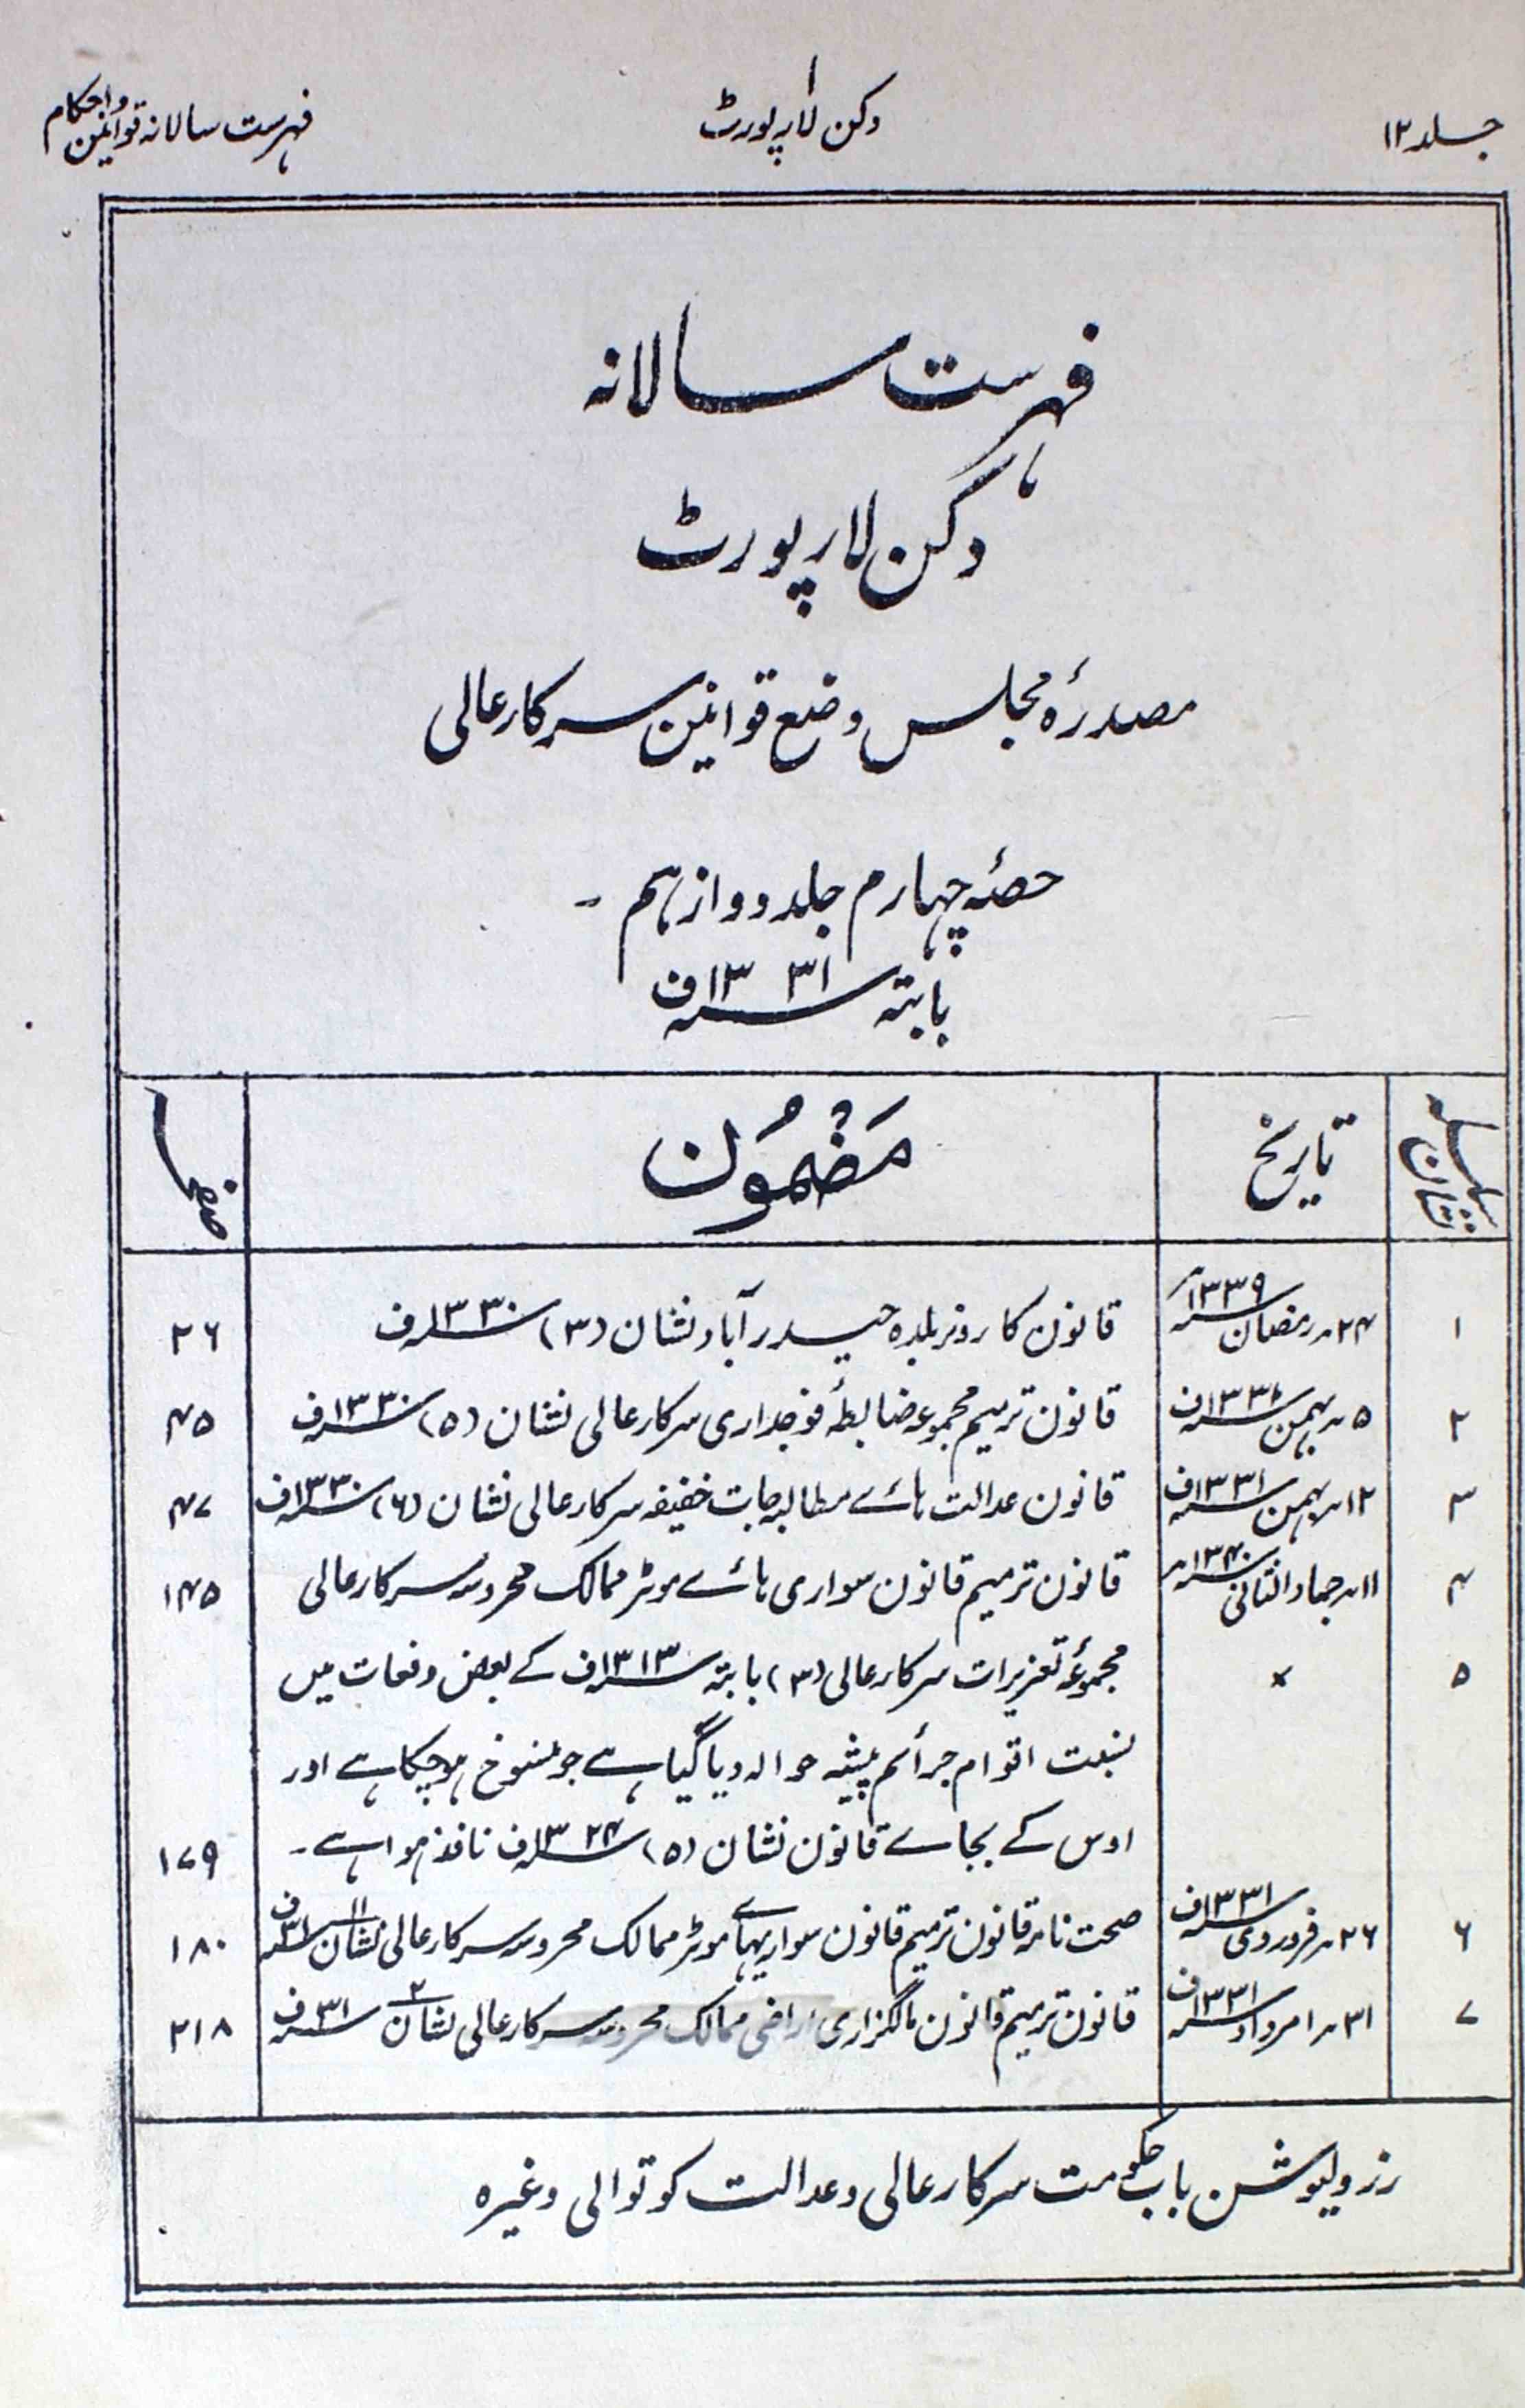 جلد ۱۲
۱
دکن لا رپورٹ
فہرست سالانہ قوانین واحکام
فہرست سالانہ
دکن لا رپورٹ
مصدرۂ مجلس وضع قوانین سرکارعالی
حصۂ چہارم جلد دوازدہم ۔
بابتہ سنہ ۱۳۳۱ف
نشان سلسلہ تاریخ مضمون صفحہ
۱ ۲۴؍رمضان سنہ ۱۳۳۹ھ قانون کارونر بلدہ حیدرآباد نشان (۳) سنہ ۱۳۳۰ف ۲۶
۲ ۵؍بہمن سنہ ۱۳۳۱ف قانون ترمیم مجموعہ ضابطۂ فوجداری سرکارعالی نشان (۵) سنہ ۱۳۳۰ف ۴۵
۳ ۱۲؍بہمن سنہ ۱۳۳۱ف قانون عدالت ہائے مطالبہ جات خفیفہ سرکارعالی نشان (۶) سنہ ۱۳۳۰ف ۴۷
۴ ۱۱؍جماد الثانی سنہ ۱۳۴۰ھ قانون ترمیم قانون سواری ہائے موٹر ممالک محروسہ سرکارعالی ۱۴۵
۵ × مجموعۂ تعزیرات سرکارعالی (۳) بابتہ سنہ ۱۳۱۳ف کے بعض دفعات میں
بنسبت اقوام جرائم پیشہ حوالہ دیا گیا ہے جو منسوخ ہوچکا ہے اور
اوس کے بجاے قانون نشان (۵) سنہ ۱۳۲۴ف نافذ ہوا ہے۔ ۱۷۹
۶ ۲۶؍فروردی سنہ ۱۳۳۱ف صحت نامہ قانون ترمیم قانون سواریہائے موٹر ممالک محروسہ سرکارعالی نشان ۱۱ سنہ ۳۱ف ۱۸۰
۷ ۳۱؍امرداد سنہ ۱۳۳۱ف قانون ترمیم قانون مالگزاری اراضی ممالک محروسہ سرکارعالی نشان ۲ سنہ ۳۱ف ۲۱۸
رزولیوشن باب حکومت سرکارعالی وعدالت کوتوالی وغیرہ